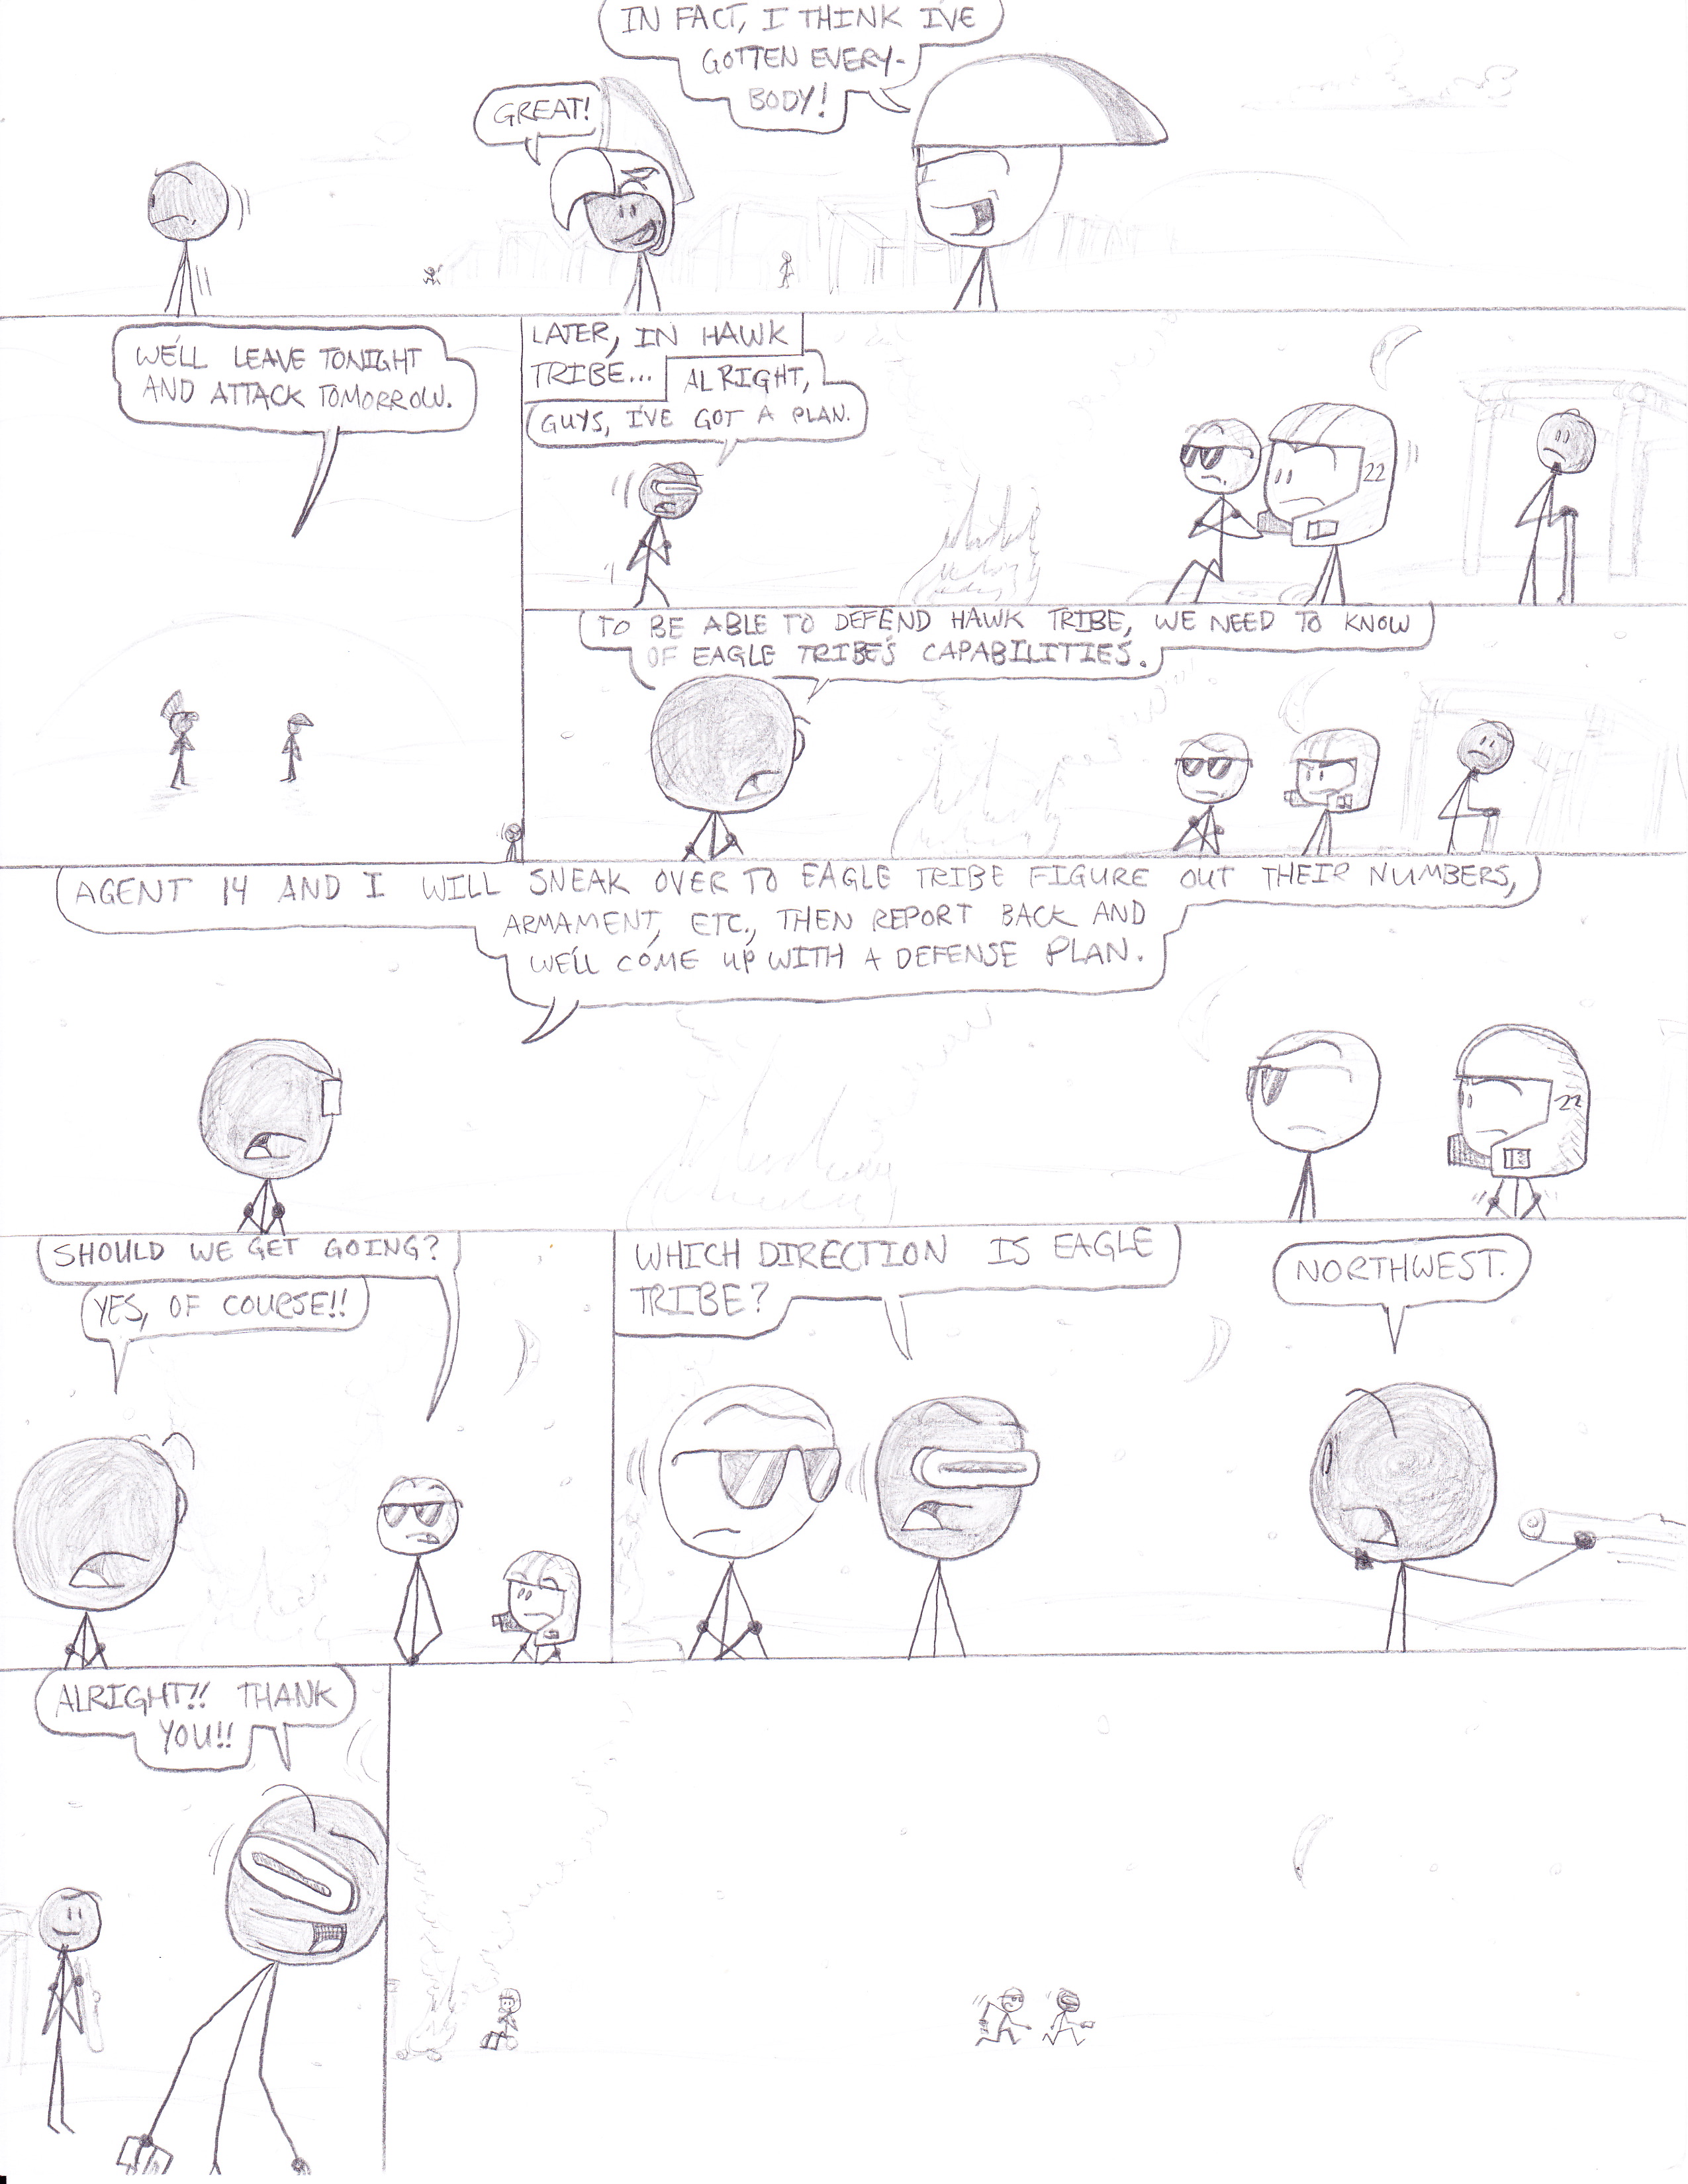 IN FACT, I THINK I'VE
GOTTEN EVERY-
BODY!
GREAT!
WE'LL LEAVE TONIGHT
AND ATTACK TOMORROW.
LATER, IN HAWK
TRIBE...
ALRIGHT,
GUYS, I'VE GOT A PLAN.
22
TO BE ABLE TO DEFEND HAWK TRIBE, WE NEED TO KNOW
OF EAGLE TRIBE'S CAPABILITIES.
AGENT 14 AND I WILL SNEAK OVER TO EAGLE TRIBE FIGURE OUT THEIR NUMBERS,
ARMAMENT, ETC., THEN REPORT BACK AND
WE'LL COME UP WITH A DEFENSE PLAN.
22
SHOULD WE GET GOING?
YES, OF COURSE!!
WHICH DIRECTION IS EAGLE
TRIBE?
NORTHWEST.
ALRIGHT!! THANK
YOU!!